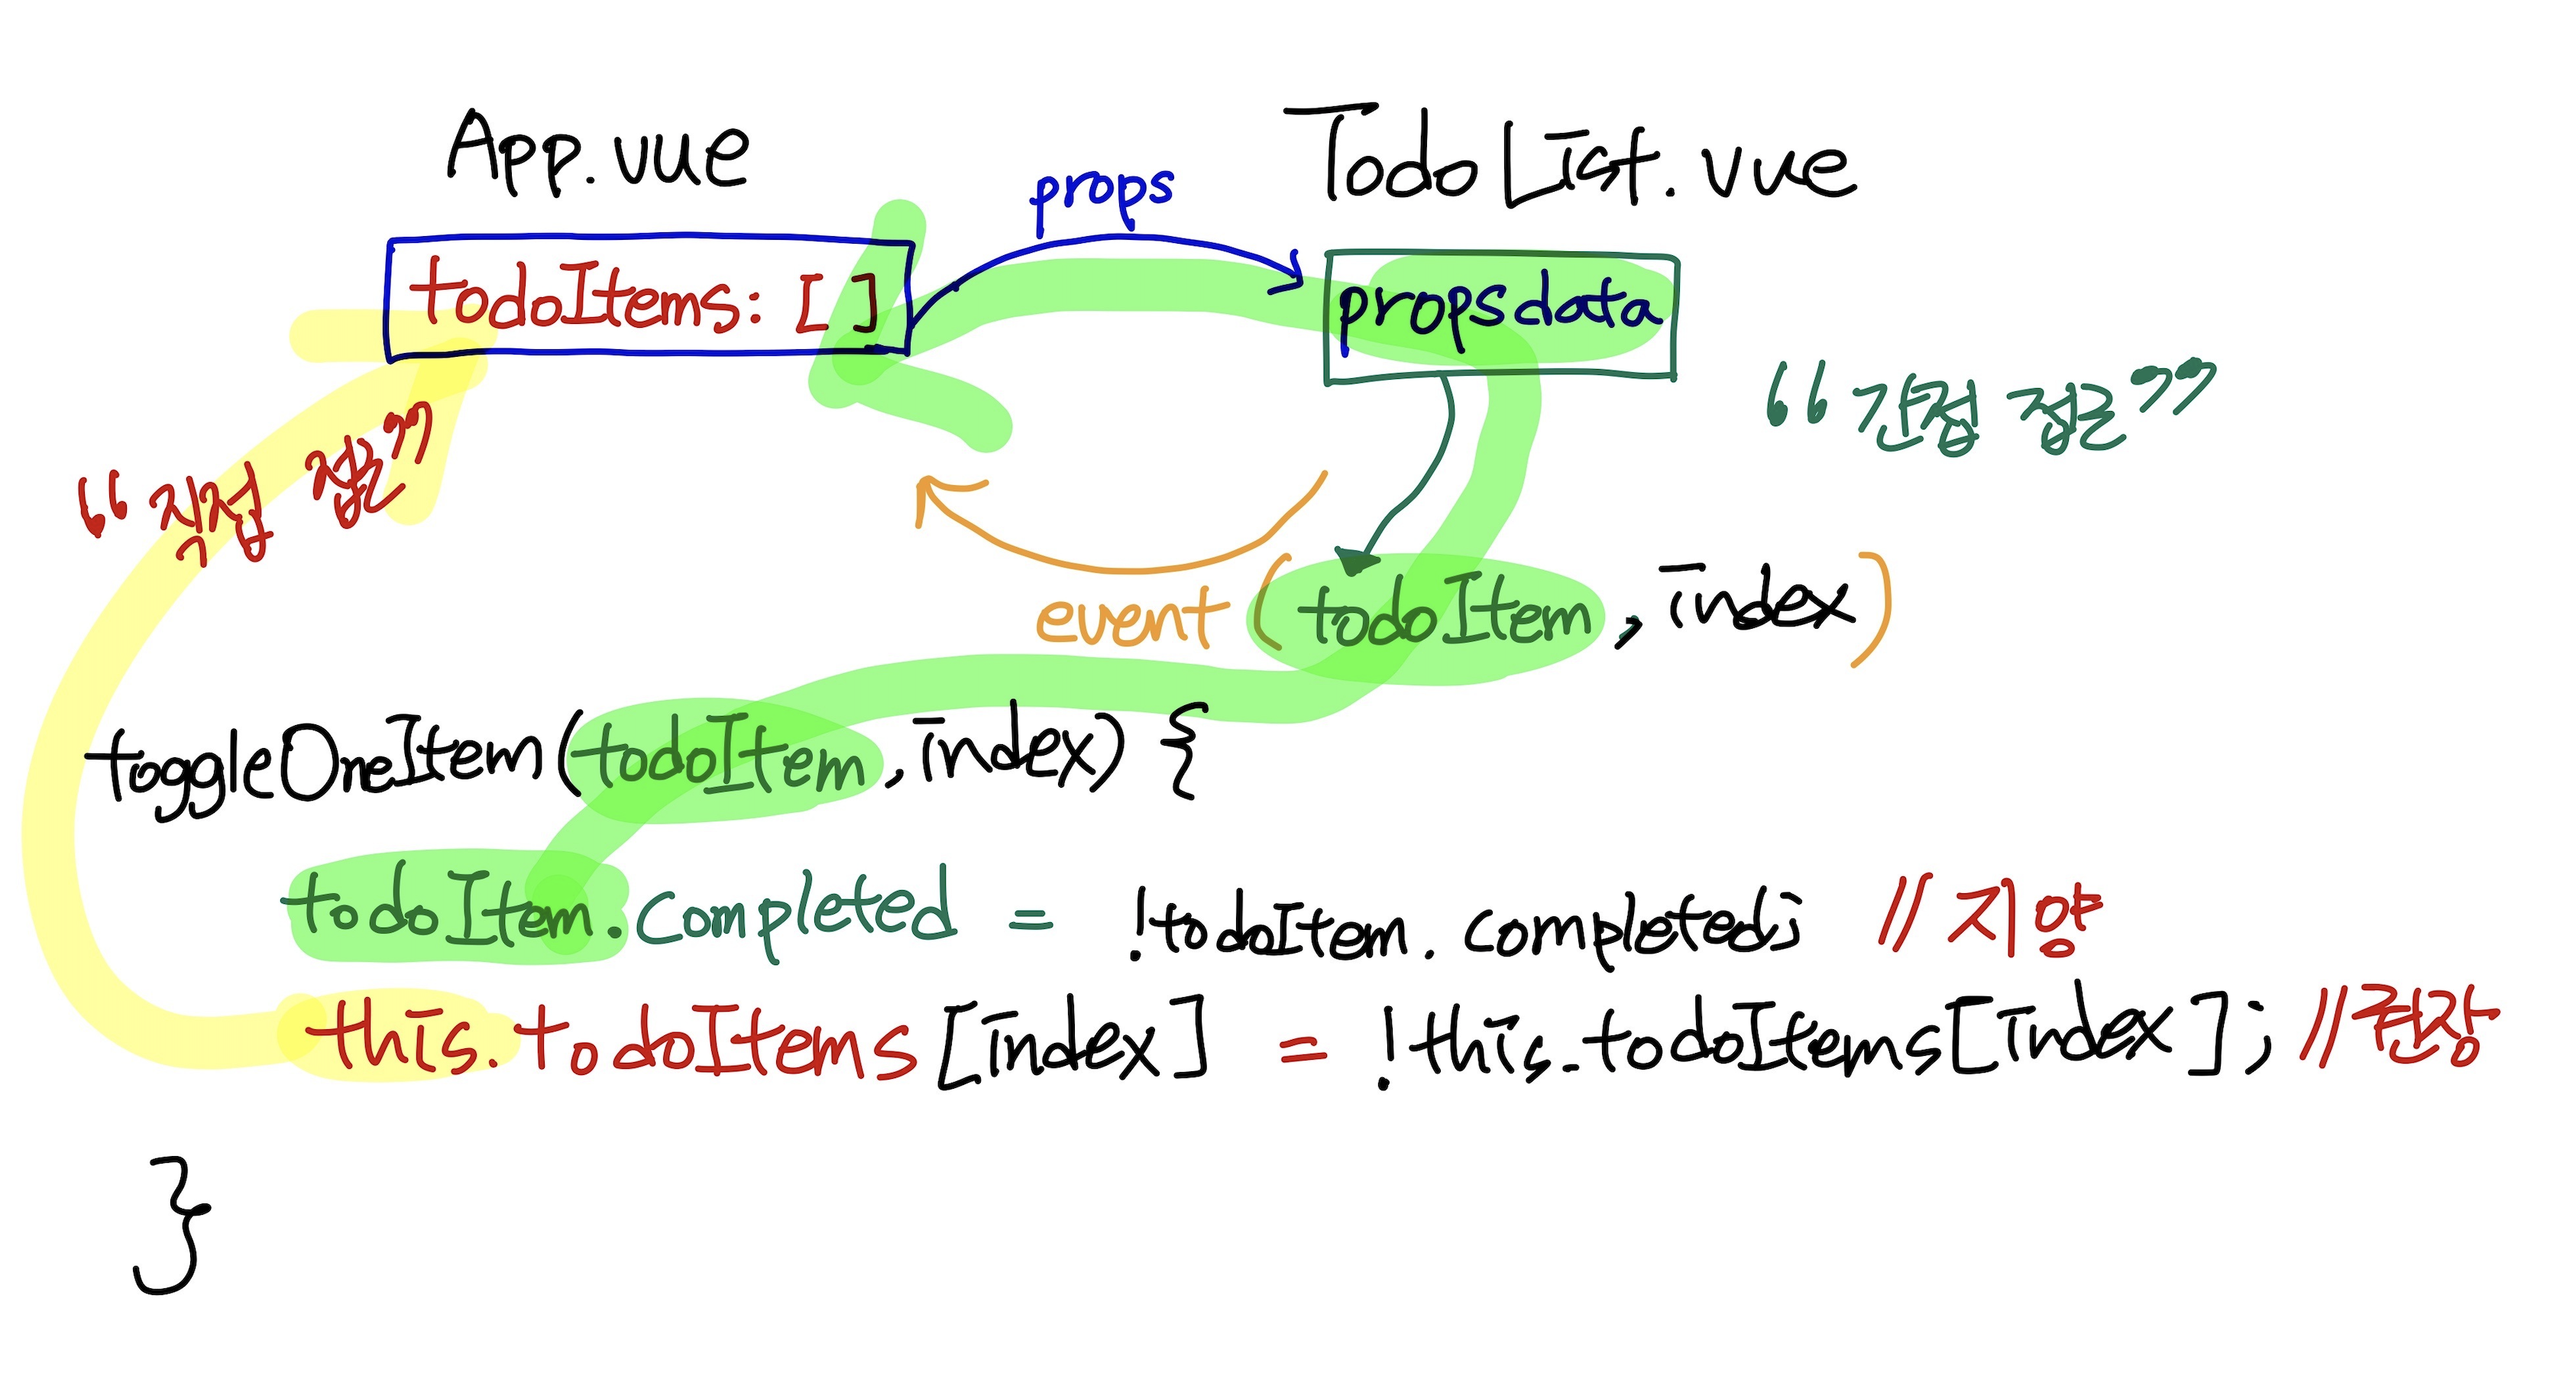 App.vue
TodoList.vue
props
todoItems: [ ]
propsdata
“간접 접근”
“직접 접근”
event (todoItem, index)
toggleOneItem(todoItem, index) {
todoItem.completed = !todoItem.completed; // 지양
this.todoItems[index] = !this.todoItems[index]; // 권장
}